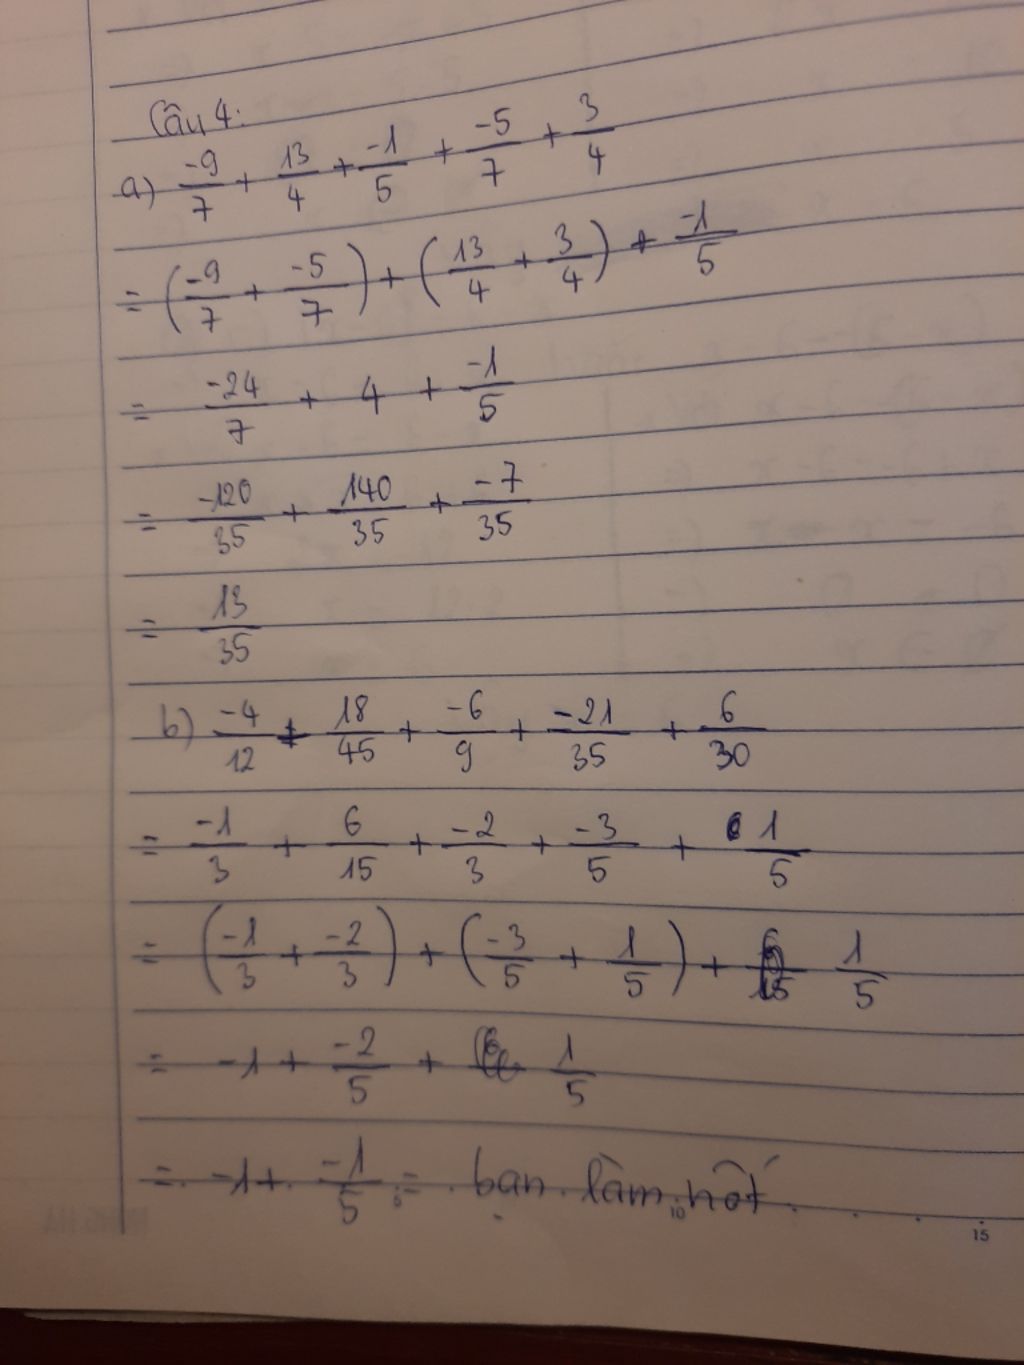 Câu 4:
a) -9/7 + 13/4 + -1/5 + -5/7 + 3/4
= (-9/7 + -5/7) + (13/4 + 3/4) + -1/5
= -24/7 + 4 + -1/5
= -120/35 + 140/35 + -7/35
= 13/35
b) -4/12 + 18/45 + -6/9 + -21/35 + 6/30
= -1/3 + 6/15 + -2/3 + -3/5 + 1/5
= (-1/3 + -2/3) + (-3/5 + 1/5) + 1/5
= -1 + -2/5 + 1/5
= -1 + -1/5 = bạn làm nốt
10
15